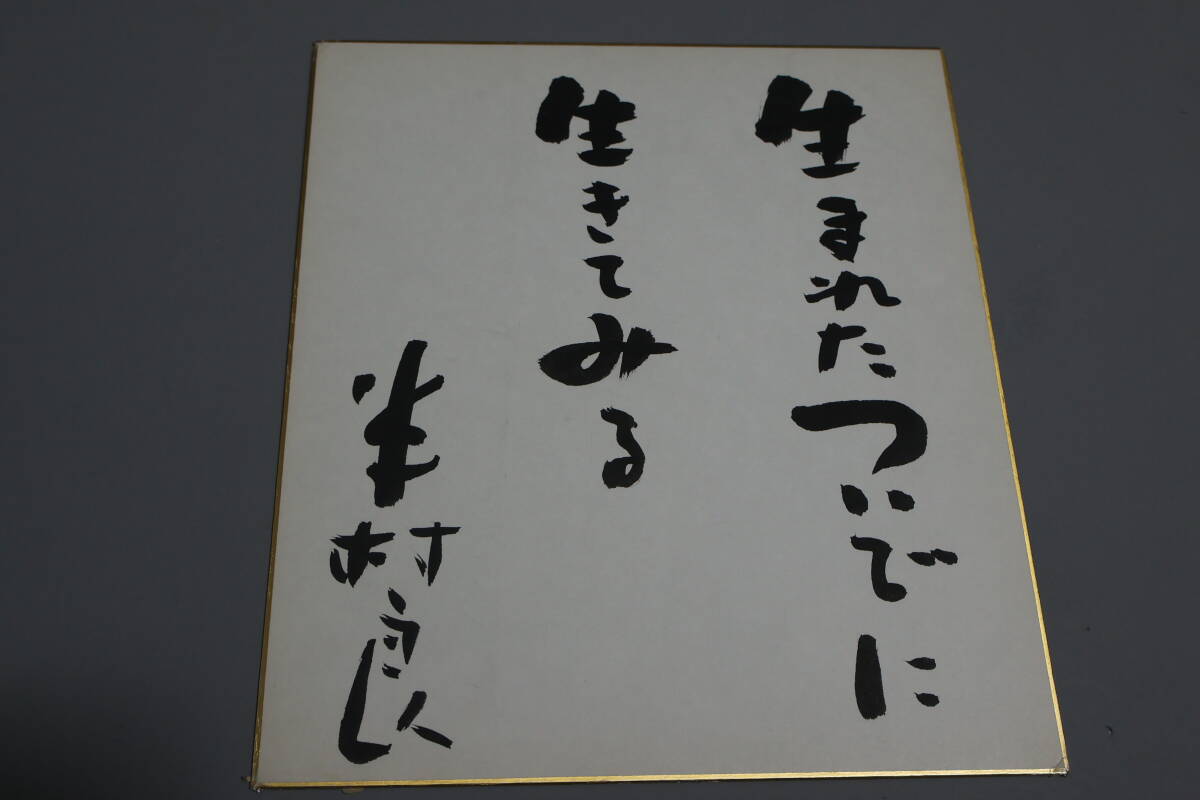 生まれたついでに
生きてみる
半村良